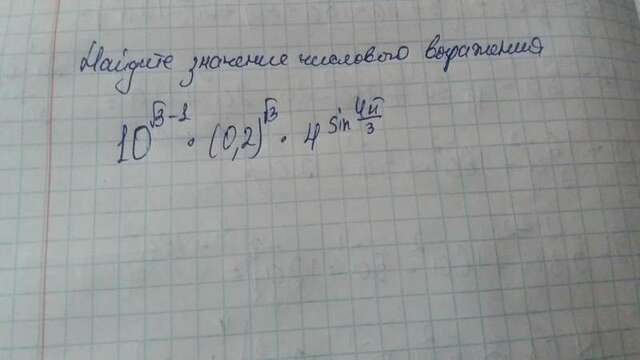 Найдите значение числового выражения
10^{√3-1} · (0,2)^{√3} · 4^{sin 4π/3}